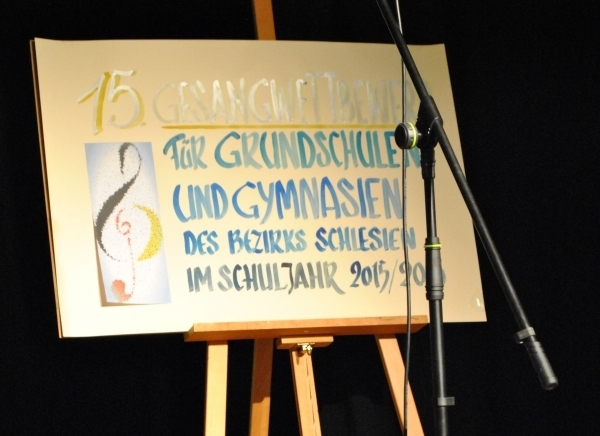 15. GESANGWETTBEWERB
FÜR GRUNDSCHULEN
UND GYMNASIEN
DES BEZIRKS SCHLESIEN
IM SCHULJAHR 2015/2016